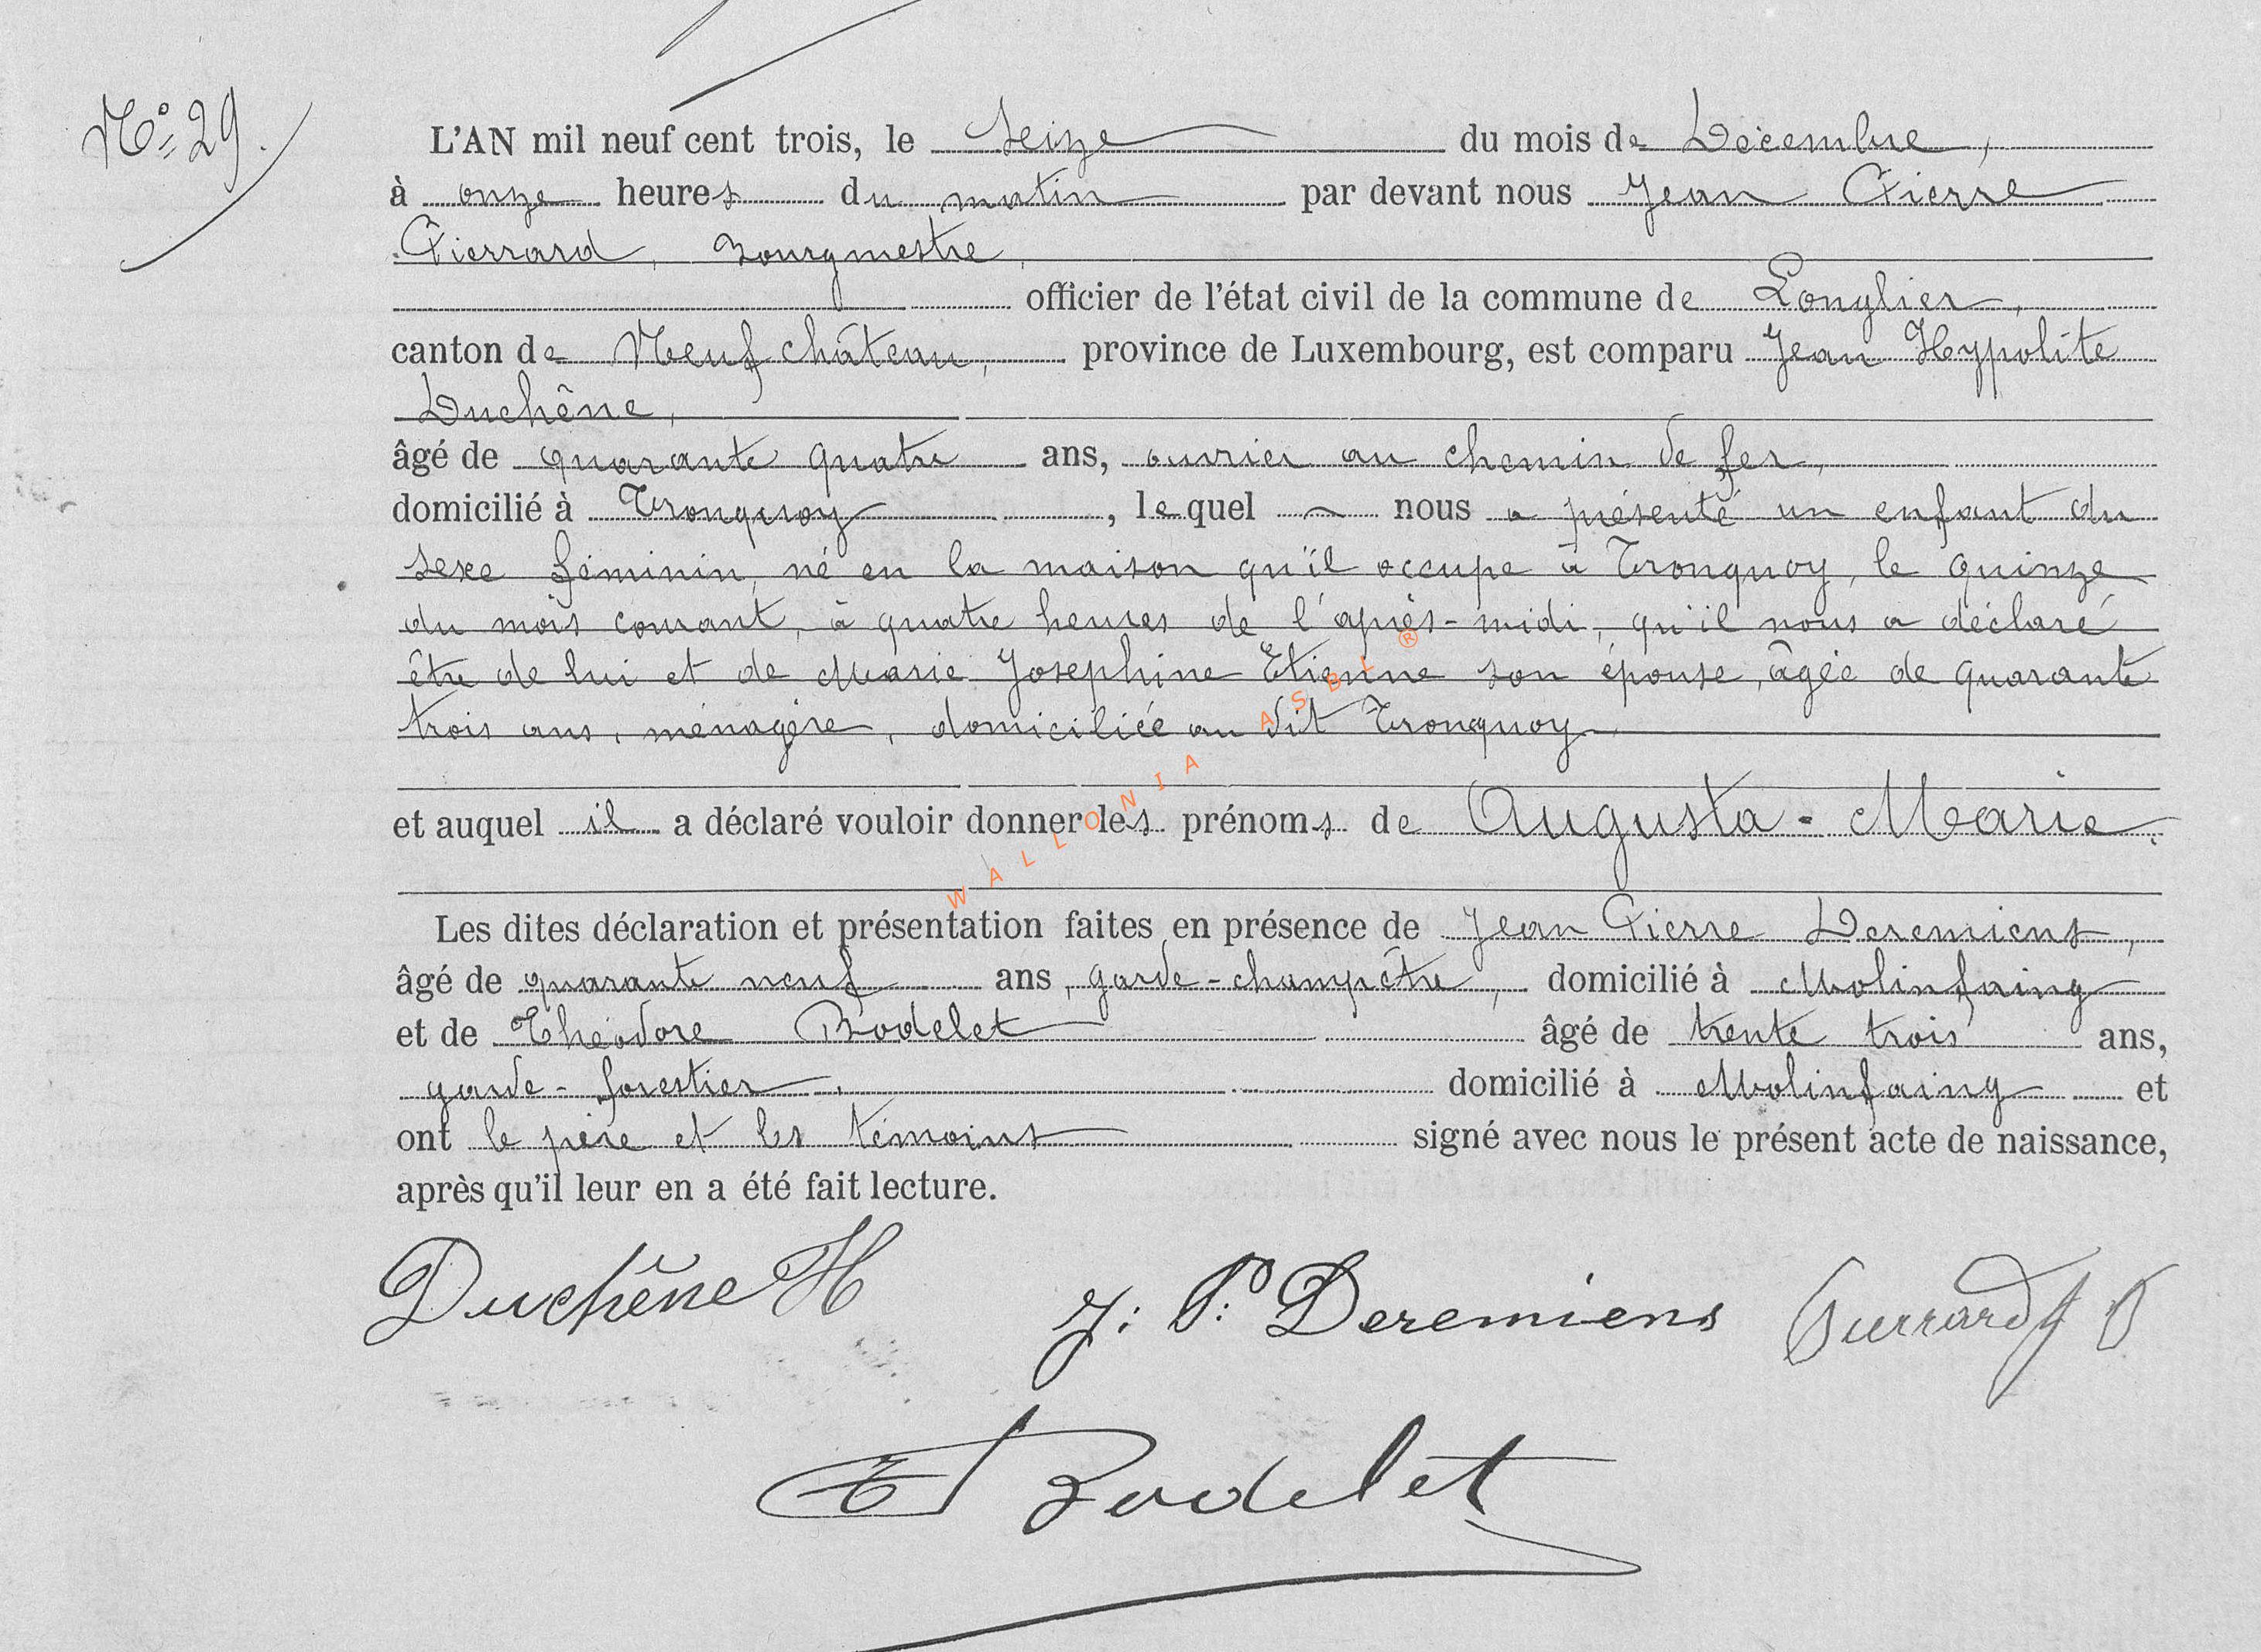 N° 29.
L'AN mil neuf cent trois, le seize du mois de Décembre,
à onze heures du matin par devant nous Jean Pierre
Pierrard, Bourgmestre,
officier de l'état civil de la commune de Longlier,
canton de Neufchâteau, province de Luxembourg, est comparu Jean Hypolite
Duchêne,
âgé de quarante quatre ans, ouvrier au chemin de fer,
domicilié à Tronquoy, lequel nous a présenté un enfant du
sexe féminin, né en la maison qu'il occupe à Tronquoy, le quinze
du mois courant, à quatre heures de l'après-midi, qu'il nous a déclaré
être de lui et de Marie Josephine Etienne son épouse, âgée de quarante
trois ans, ménagère, domiciliée au dit Tronquoy
et auquel il a déclaré vouloir donner les prénoms de Augusta-Marie.
Les dites déclaration et présentation faites en présence de Jean Pierre Deremiens,
âgé de quarante neuf ans, garde-champêtre, domicilié à Molinfaing
et de Théodore Bodelet âgé de trente trois ans,
garde-forestier, domicilié à Molinfaing et
ont le père et les témoins signé avec nous le présent acte de naissance,
après qu'il leur en a été fait lecture.
Duchêne H J: P: Deremiens Pierrard J P
T Bodelet
WALLONIA ASBL ®